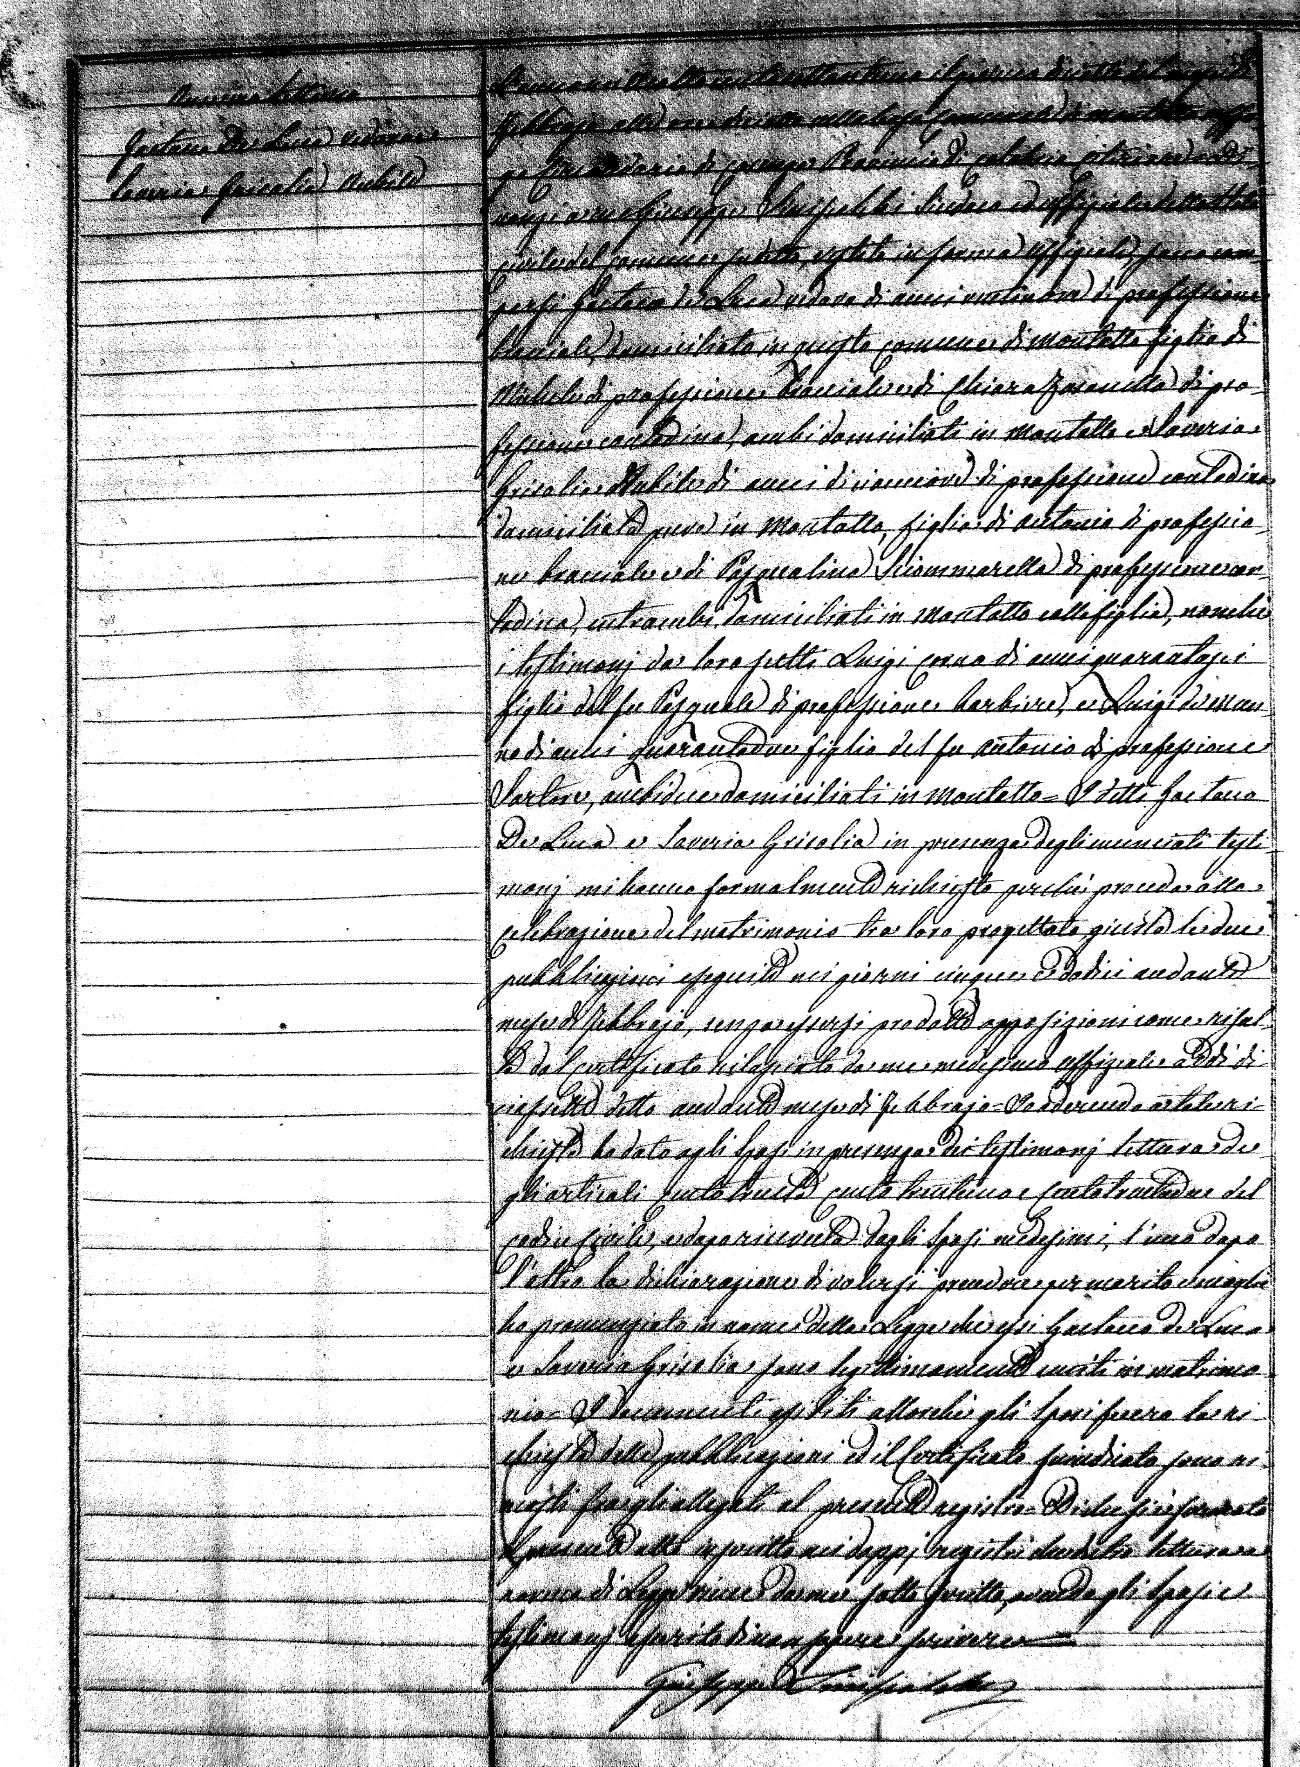 Numero settimo
Gaetano De Luca vedovo e
Saveria Grisolia Nubile
L'anno milleottocentosettantuno il giorno diciotto del mese di
Febbrajo alle ore nella Casa Comunale di Montalto
Circondario di Cosenza Provincia di Calabria Citeriore
nanzi a me Giuseppe Sindaco ed Uffiziale dello Stato
civile del comune sudetto, vestito in forma uffiziale, sono com-
parsi Gaetano de Luca vedovo di anni di professione
bracciale, domiciliato in questo comune di Montalto figlio di
Michele di professione bracciale e di Chiara di pro-
fessione contadina, ambi domiciliati in Montalto e Saveria
Grisolia Nubile di anni diciannove di professione contadina
domiciliata pure in Montalto, figlia di Antonio di professio-
ne bracciale e di Pasqualina Sciammarella di professione con-
tadina, entrambi domiciliati in Montalto colla figlia, nonché
i testimonj da loro scelti Luigi di anni quarantasei
figlio del fu Pasquale di professione barbiere, e Luigi de Mun-
no di anni quarantadue figlio del fu Antonio di professione
Sartore, ambidue domiciliati in Montalto = I detti Gaetano
De Luca e Saveria Grisolia in presenza degli enunciati testi-
monj mi hanno formalmente richiesto perché proceda alla
celebrazione del matrimonio tra loro progettato giusta le due
pubblicazioni eseguite nei giorni cinque e dodici andante
mese di Febbrajo, senza essersi prodotte opposizioni come risul-
ta dal certificato rilasciato da me medesimo uffiziale addì di-
ciassette detto andante mese di Febbrajo = Io aderendo a tale ri-
chiesta ho dato agli sposi in presenza dei testimonj lettura de
gli articoli centotrenta centotrentuno e centotrentadue del
codice Civile, e dopo ricevuta dagli sposi medesimi, l'uno dopo
l'altro la dichiarazione di volersi prendere per marito e moglie
ho pronunziato in nome della Legge che essi Gaetano de Luca
e Saveria Grisolia sono legittimamente uniti in matrimo-
nio = I documenti esibiti allorché gli sposi fecero la ri-
chiesta delle pubblicazioni ed il Certificato sono ri-
masti fra gli allegati al presente registro = Di che si è formato
il presente atto inscritto nei doppj registri lettura a
norma di Legge viene da me sotto scritto, avendo gli sposi e
testimonj asserito di non sapere scrivere
Giuseppe